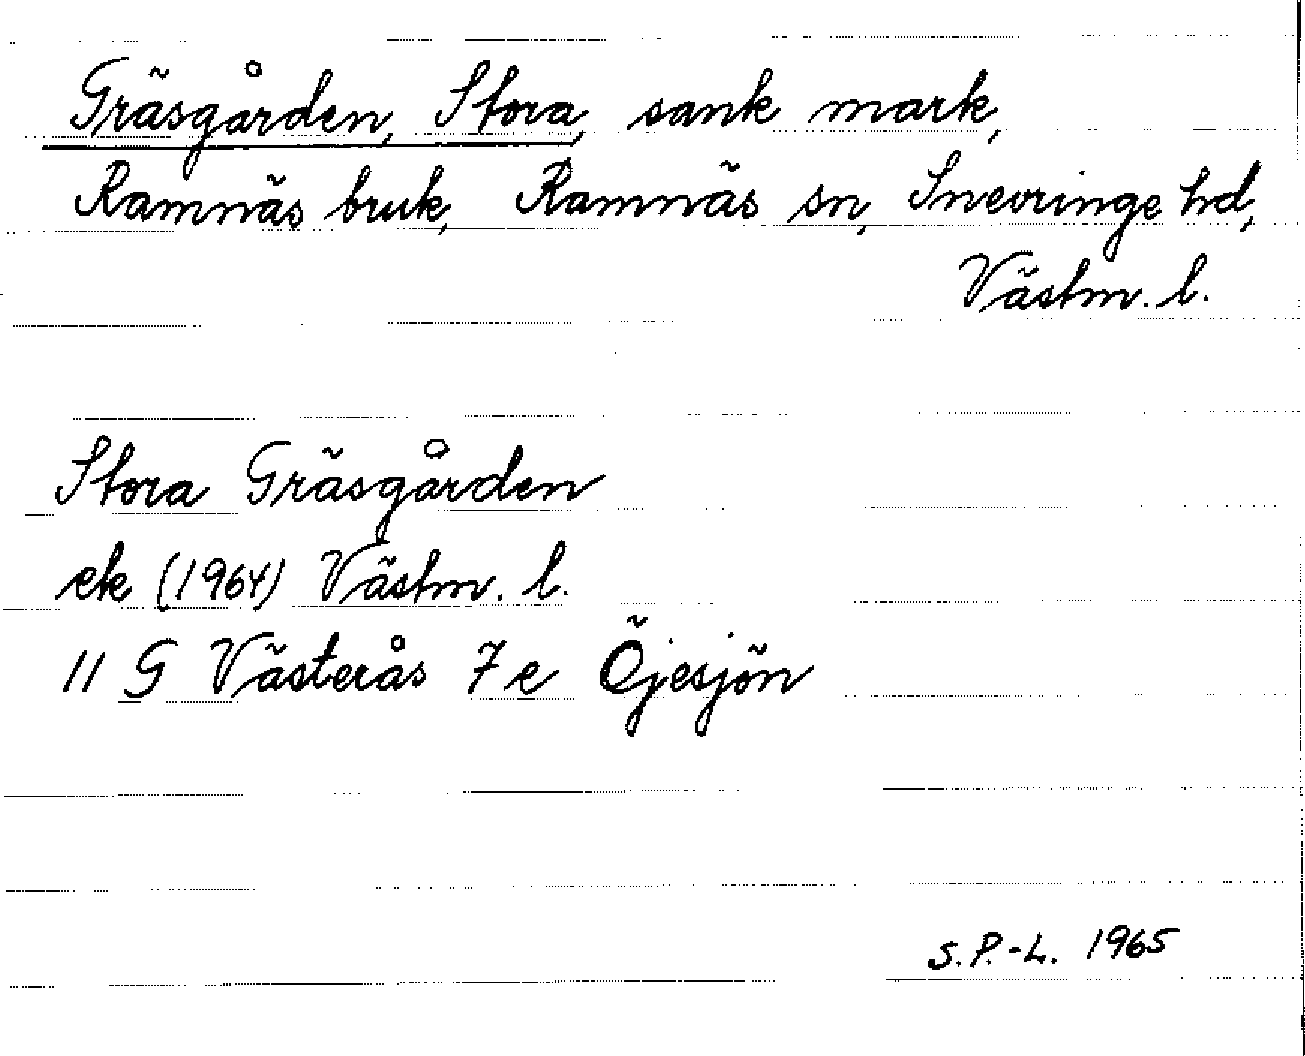 Gräsgården, Stora, sank mark,
Ramnäs bruk, Ramnäs sn, Snevringe hd,
Västm. l.
Stora Gräsgården
ek (1964) Västm. l.
11 G Västerås 7 e Öjesjön
S.P.-L. 1965